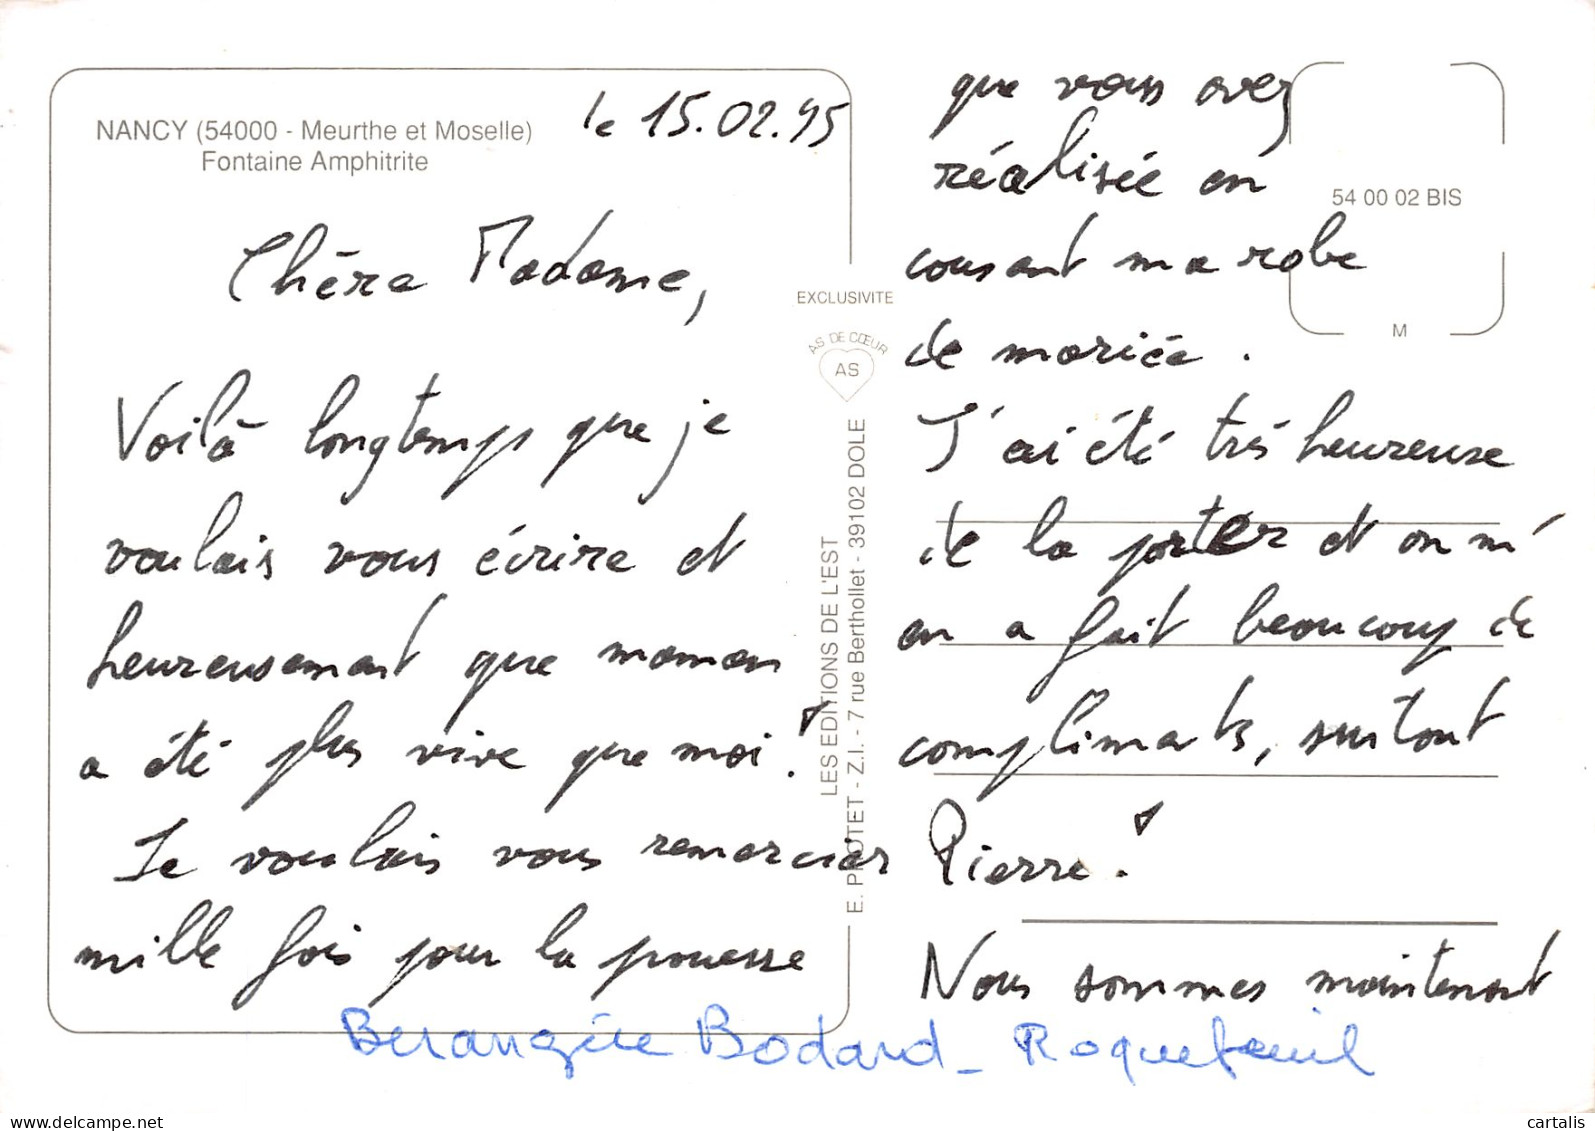 NANCY (54000 - Meurthe et Moselle)
Fontaine Amphitrite
le 15.02.95
Chère Madame,
Voilà longtemps que je
voulais vous écrire et
heureusement que maman
a été plus vive que moi !
Je voulais vous remercier
mille fois pour la prouesse
que vous avez
réalisée en
cousant ma robe
de mariée .
J'ai été très heureuse
de la porter et on m'
en a fait beaucoup de
compliments, surtout
Pierre !
Nous sommes maintenant
Berangère Bodard - Roquefeuil
EXCLUSIVITE
AS DE CŒUR
AS
LES EDITIONS DE L'EST
E. PROTET - Z.I. - 7 rue Berthollet - 39102 DOLE
54 00 02 BIS
M
www.delcampe.net
cartalis